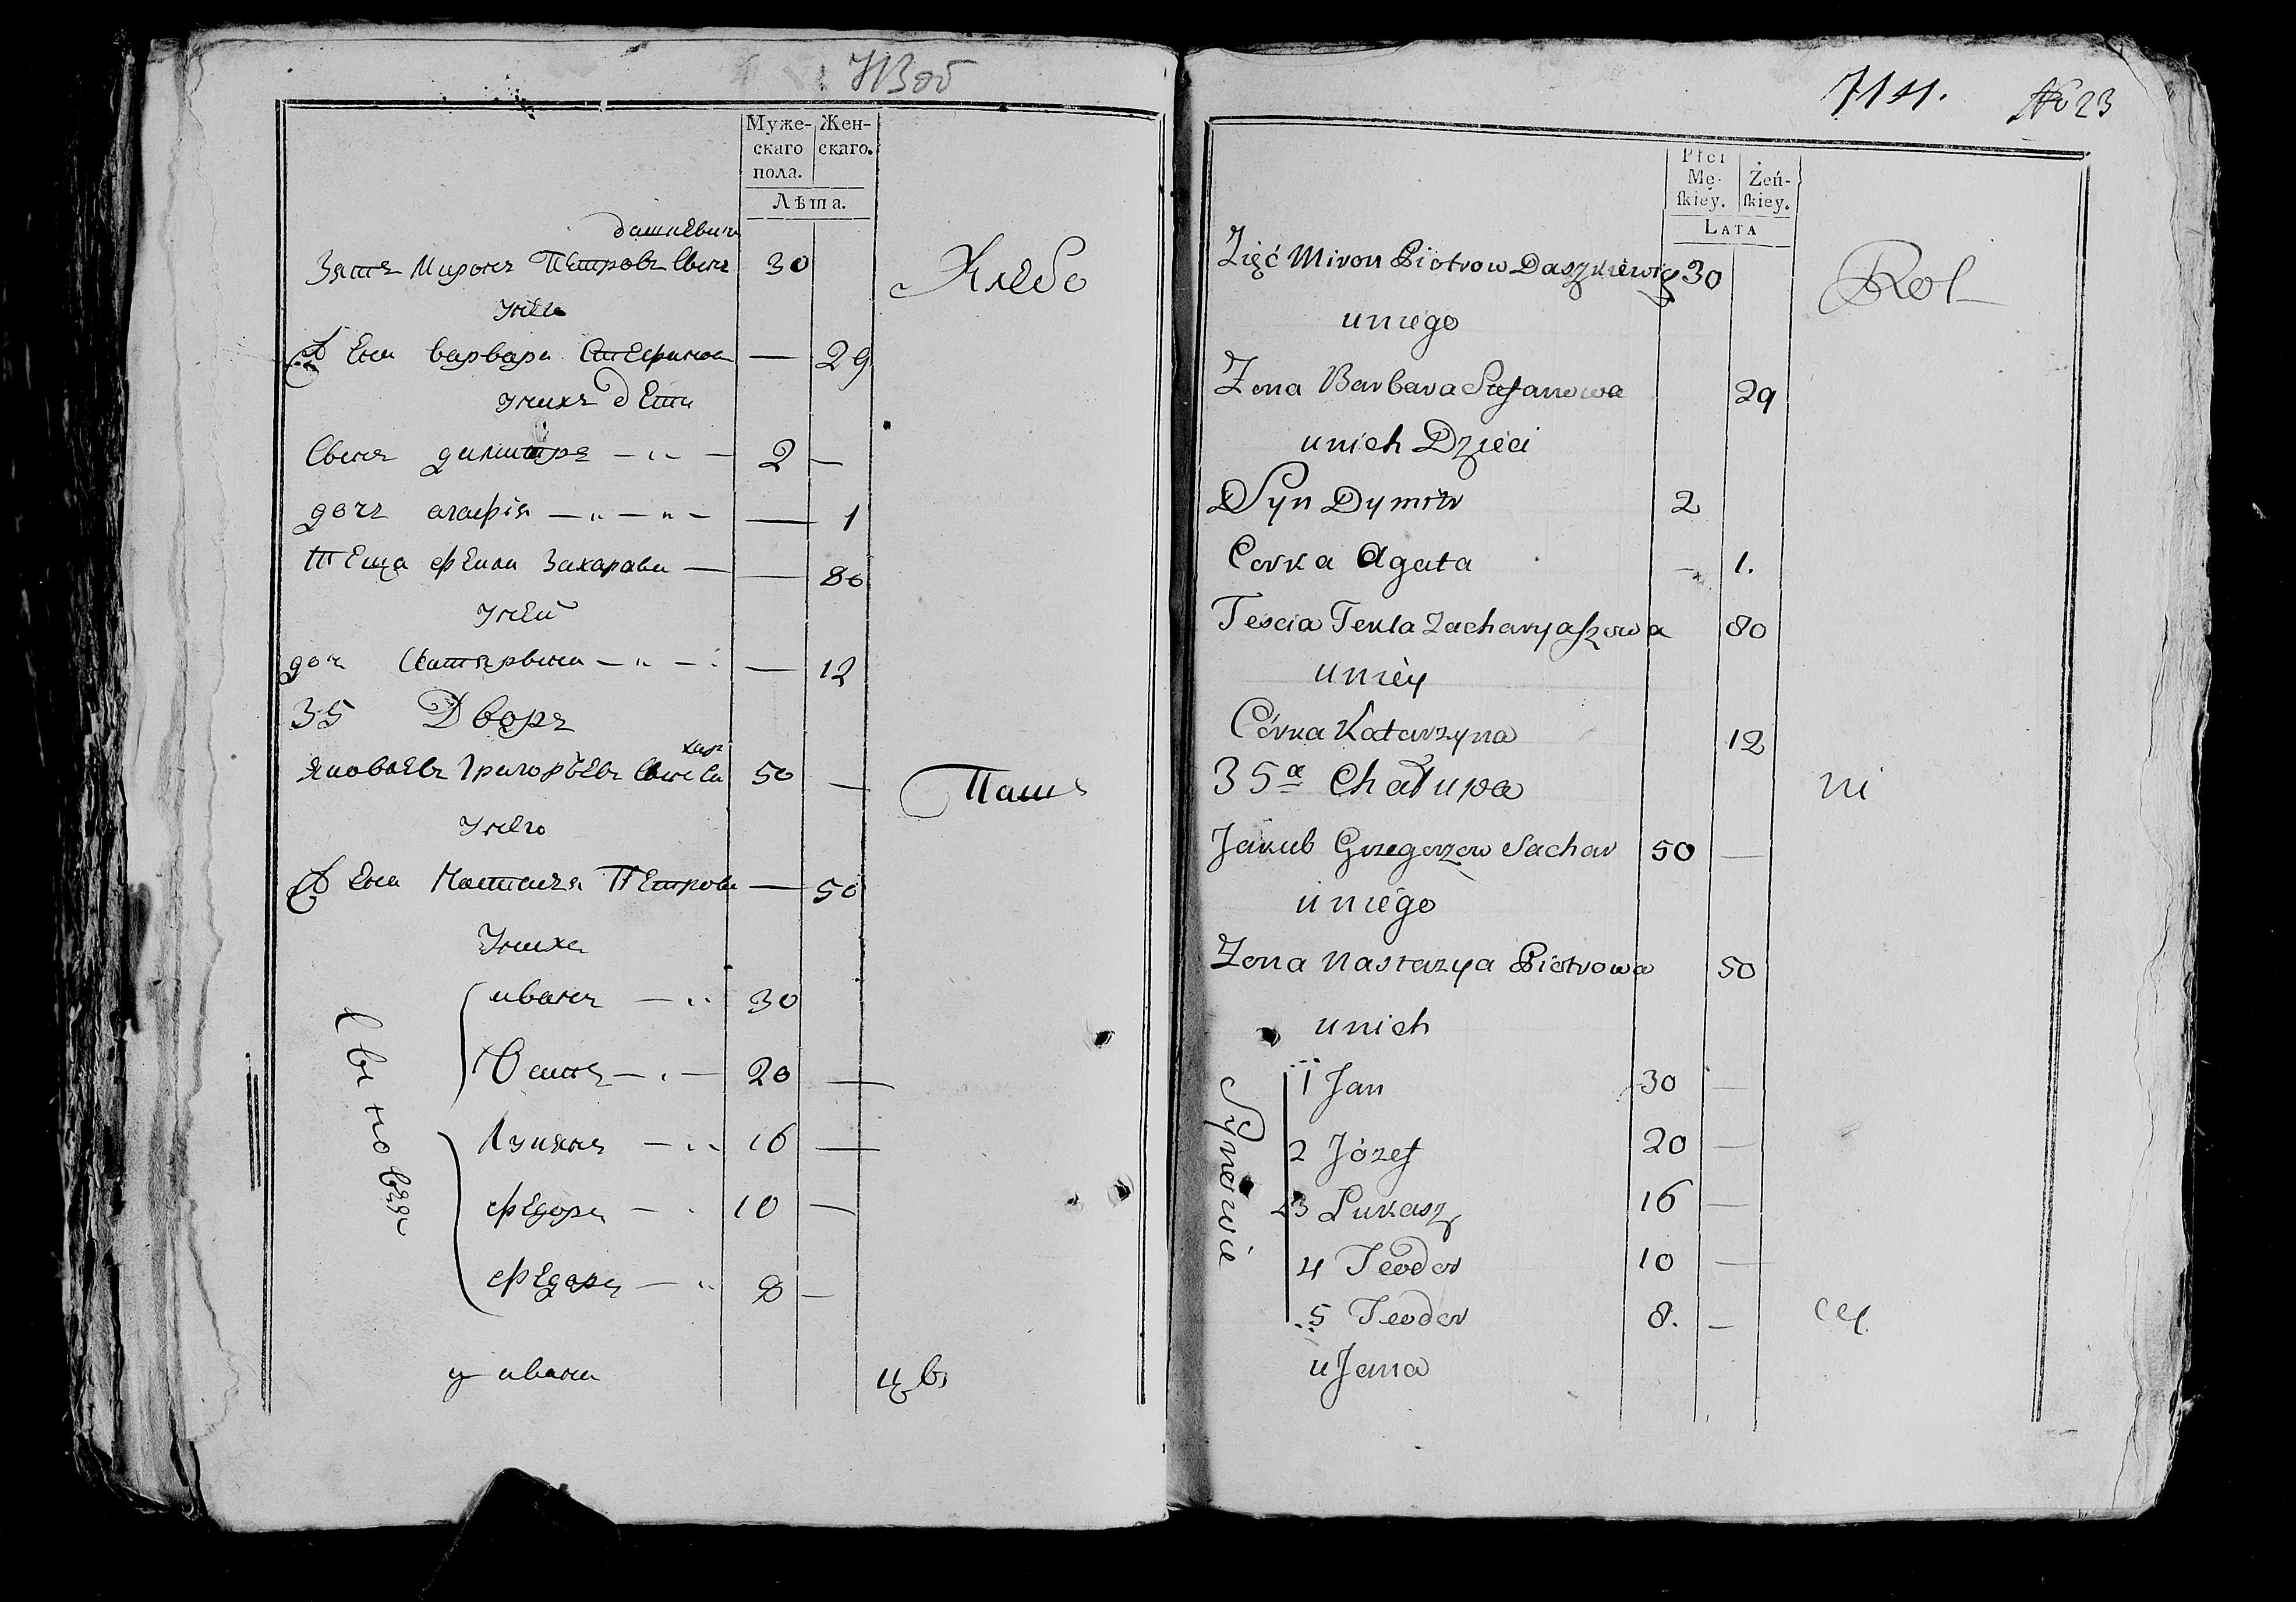 Муже- Жен-
скаго скаго.
пола.
Лѣта.
дашкевичъ
Зять Миронъ Петровъ сынъ 30
Унего
Жена варвара Стефанова — 29
Унихъ дети
Сынъ димитръ — 2 —
дочъ агафія — — 1
Теща фекла Захарова — — 80
Уней
доч Катярына — — 12
35 Дворъ
Яковъевъ Григорьевъ 50 —
Унего
Жена Настасъя Петрова — 50
Унихъ
Сыновья
иванъ — 30
Осипъ — 20 —
Лукянъ — 16 —
федоръ — 10 —
федоръ — 8 —
у ивана
Хлебо
Паш
цв
711.
No 23
Płci
Mę- Żeń-
ſkiey. ſkiey.
LATA
Zięć Miron Piotrow Daszkiewicz 30
uniego
Zona Barbara Stefanowa 29
unich Dzieci
Syn Dymitr 2
Corka Agata — 1.
Tescia Tekla Zacharyaszowa 80
uniey
Córka Katarzyna 12
35a Chałupa
Jakub Grzegorzow Sachar 50 —
uniego
Zona Nastazya Piotrowa 50
unich
Synowie
1 Jan 30 —
2 Józef 20 —
3 Łukasz 16 —
4 Teodor 10 —
5 Teodor 8. —
uJana
Rol
ni
cy.